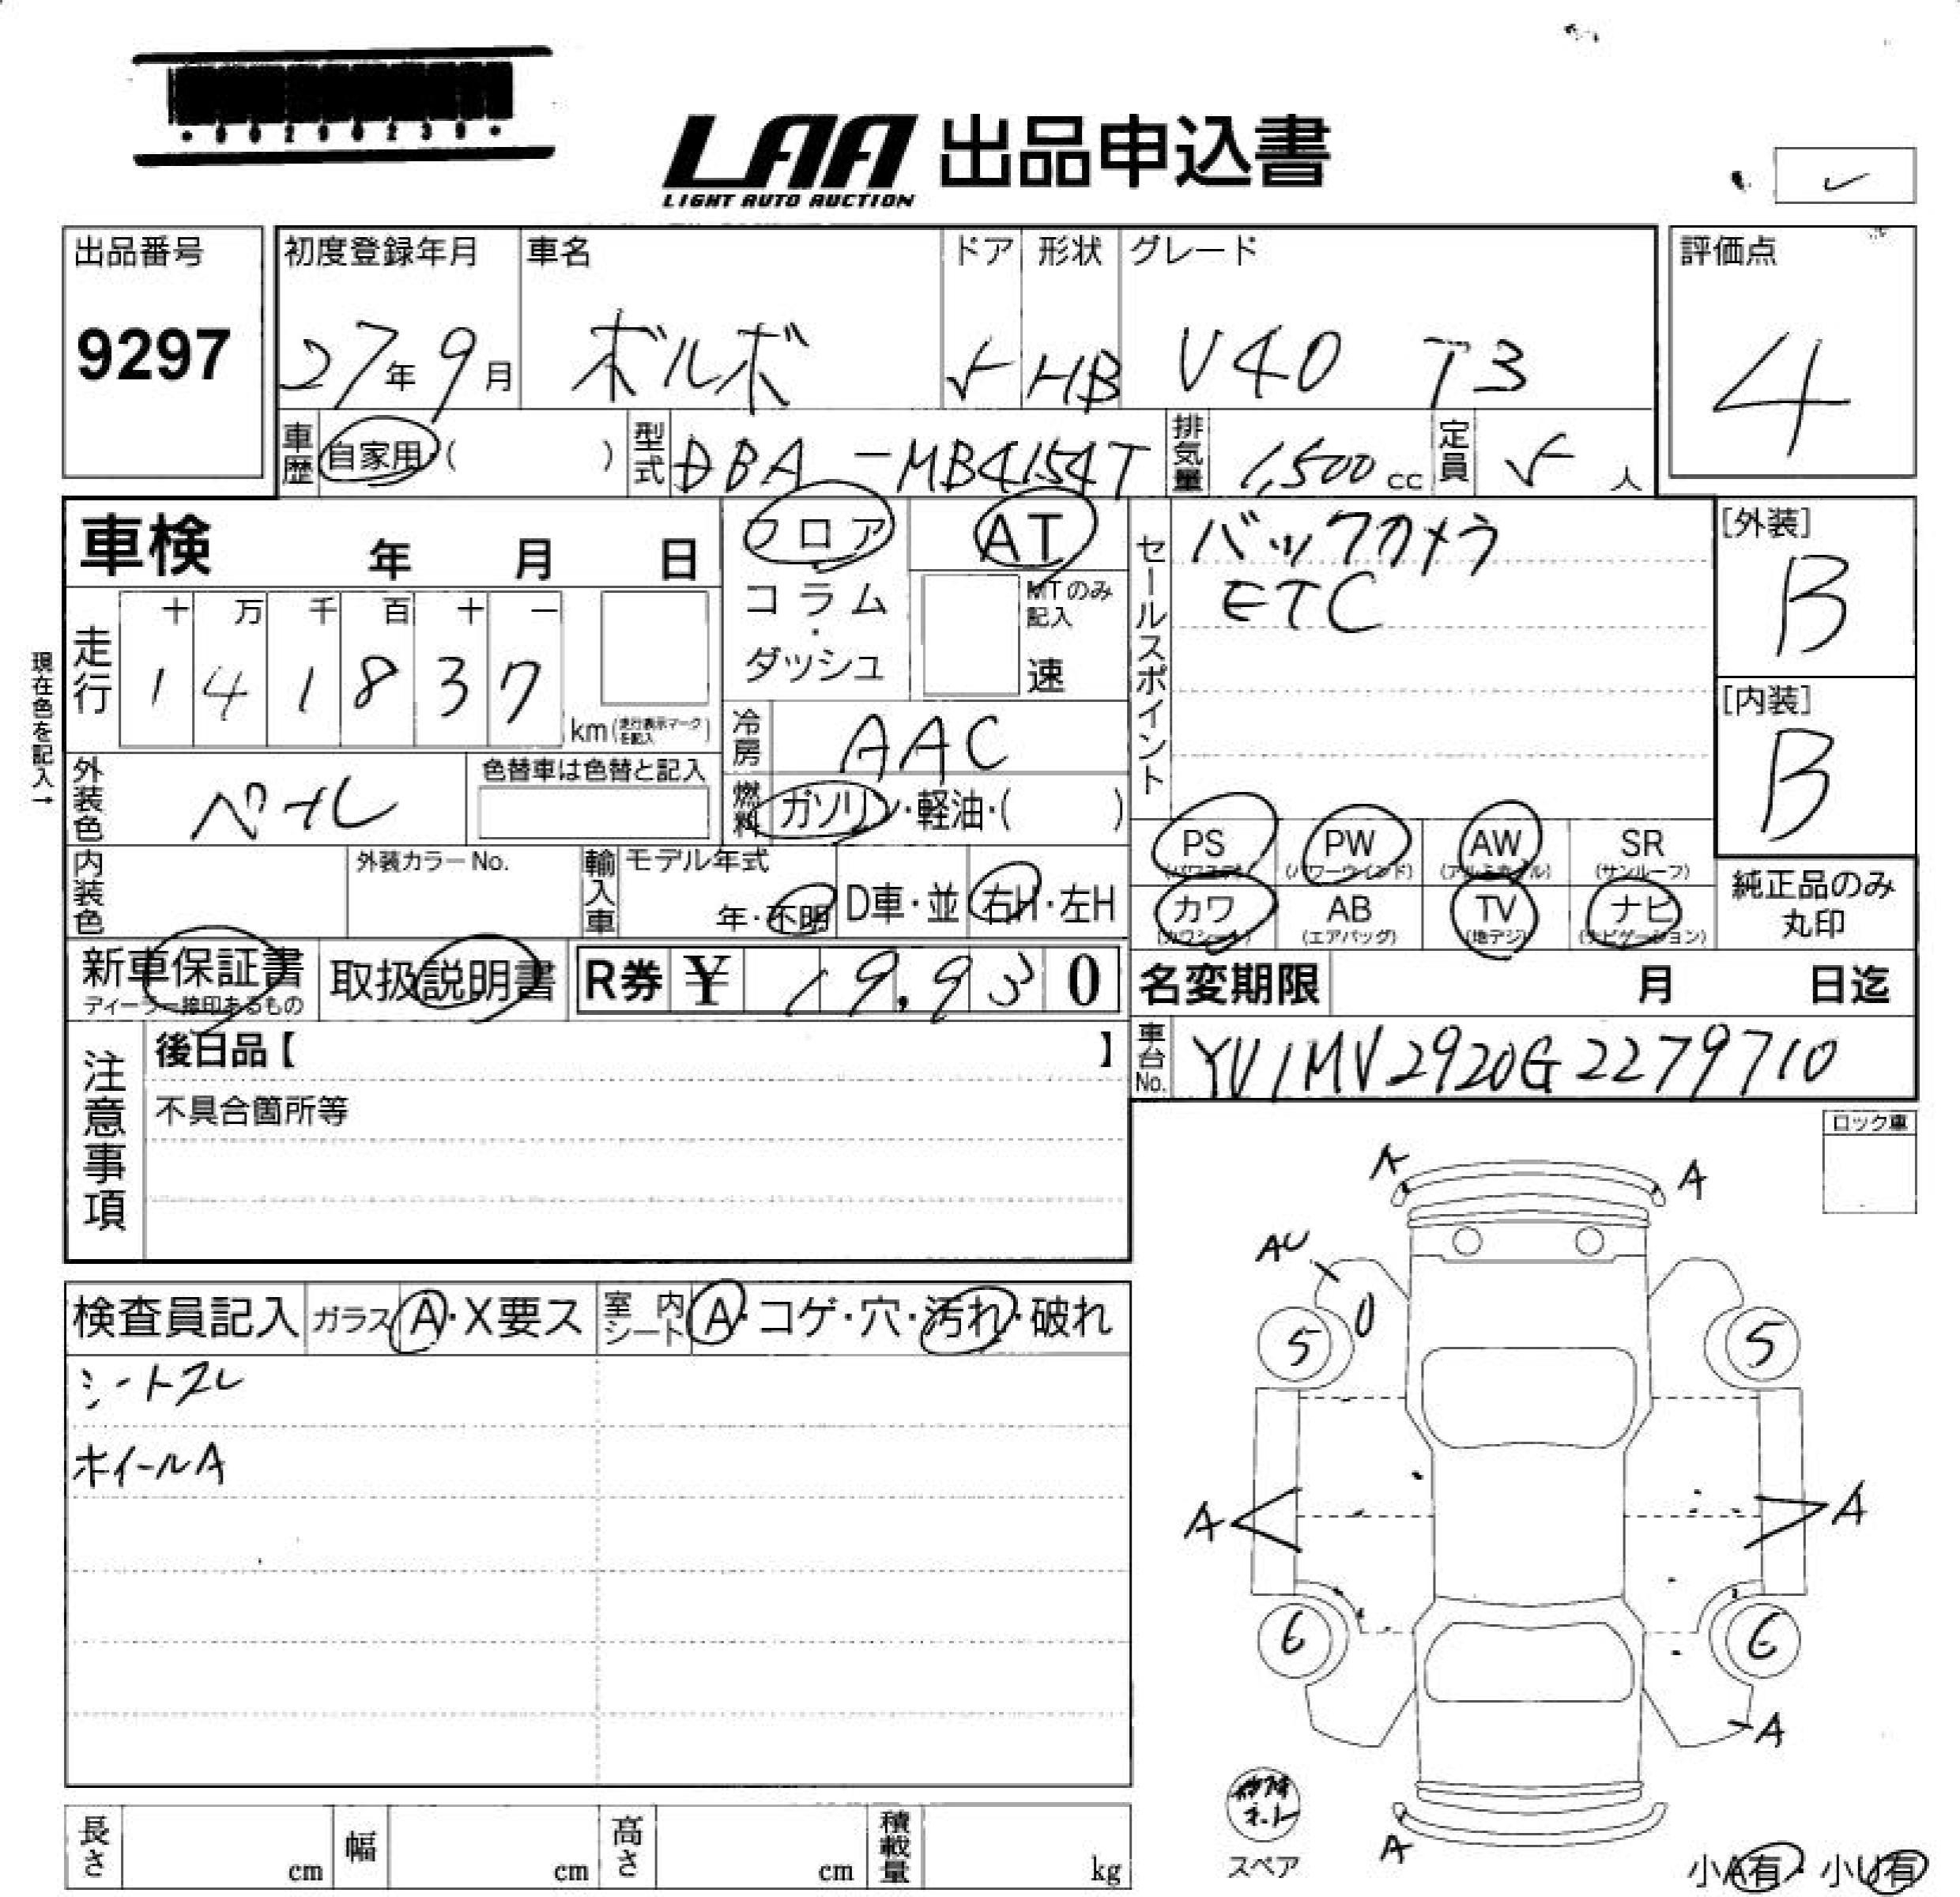 LAA 出品申込書
LIGHT AUTO AUCTION
出品番号 初度登録年月 車名 ドア 形状 グレード 評価点
9297 27年9月 ボルボ 5 HB V40 T3 4
車歴 自家用・( ) 型式 DBA-MB4154T 排気量 1,500cc 定員 5人
車検 年 月 日
フロア AT
コラム・ダッシュ MTのみ記入 速
セールスポイント バックカメラ
ETC
[外装] B
現在色を記入→
走行 十 万 千 百 十 一
1 4 1 8 3 7 km(走行表示マークを記入)
冷房 AAC
[内装] B
外装色 色替車は色替と記入
燃料 ガソリン・軽油・( )
PS PW AW SR
(パワステ) (パワーウインド) (アルミホイル) (サンルーフ)
カワ AB TV ナビ
(カワシート) (エアバッグ) (地デジ) (ナビゲーション)
純正品のみ
丸印
内装色 外装カラーNo. 輸入車 モデル年式
年・不明 D車・並 右H・左H
新車保証書 取扱説明書 R券 ¥ 19,930
ディーラー捺印あるもの
名変期限 月 日迄
車台No. YV1MV2920G2279710
注意事項 後日品【 】
不具合箇所等
ロック車
検査員記入 ガラス A・X要ス 室内シート A・コゲ・穴・汚れ・破れ
シートスレ
ホイールA
A A
AU
U
5 5
A A
6 6
A
A
スペア
小A有・小U有
長さ cm 幅 cm 高さ cm 積載量 kg